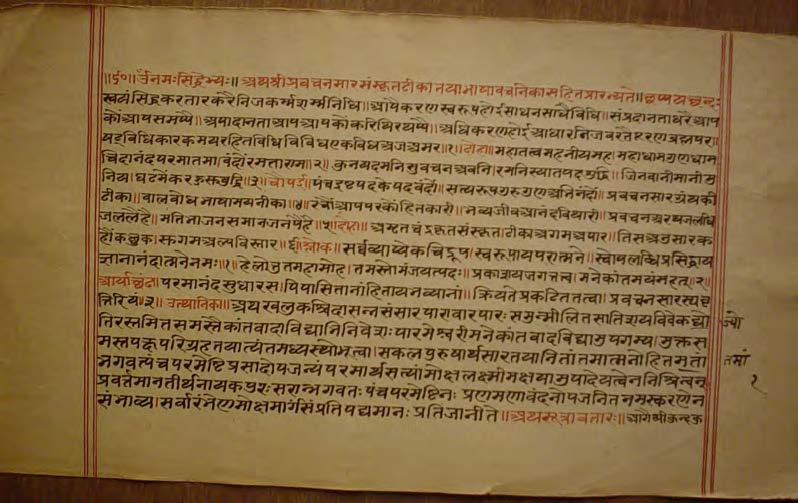 ॥५०॥ ॐ नमःसिद्धेभ्यः॥ अथ श्रीप्रवचनसार संस्कृतटीका तथा भाषा वचनिका सहित प्रारभ्यते॥ छप्पयछन्दः
स्वयंसिद्ध करतार करै निज कर्म शर्मनिधि॥ आपै करण स्वरूप होई साधन साधै विधि॥ संप्रदानता धरै आप
कौं आप समप्पै॥ अपादानता आप आप कौं करि थिर थप्पै॥ अधिकरण होई आधार निज वरतै पूरण ब्रह्म पर॥
षट् विधि कारकमय रहित विधि विविध एक विधि अज अमर॥१॥ दोहा॥ महातत्व महनीय मह। महाधाम गुणधाम
चिदानंद परमातमा। वंदौं रमताराम॥२॥ कुनयदमनि सुवचन अवनि। रमनि स्यातपद शुद्धि॥ जिनवानी मानी मु
निप। घट मैं करहु सुबुद्धि॥३॥ चौपई॥ पंच इष्ट पद के पद वंदौं॥ सत्यरूप गुरु गुण अभिनंदौं॥ प्रवचनसार ग्रंथ की
टीका॥ बालबोध भाषामय नीका॥४॥ रचौं आप पर कौं हितकारी॥ भव्य जीव आनंद विथारी॥ प्रवचन अरथ जलधि
जल लैहै॥ मति भाजन समान जन पैहै॥५॥ दोहा॥ अमृतचंद्र कृत संस्कृत। टीका अगम अपार॥ तिस अनुसार क
हौं कछुक। सुगम अल्प विस्तार॥६॥ श्लोक॥ सर्वव्याप्येकचिद्रूप। स्वरूपाय परात्मने॥ स्वोपलब्धिप्रसिद्धाय
ज्ञानानंदात्मने नमः॥१॥ हेलोल्लुप्तमहामोह। तमस्तोमं जयत्यदः॥ प्रकाशयज्जगत्तत्व। मनेकांतमयं महः॥२॥
आर्याछंद॥ परमानंदसुधारस। पिपासितानां हिताय भव्यानां॥ क्रियते प्रकटिततत्वा। प्रवचनसारस्य वृ
त्तिरियं॥३॥ उत्थानिका॥ अथ खलु कश्चिदासन्नसंसारपारावारपारः समुन्मीलितसातिशयविवेकज्यो
तिरस्तमितसमस्तैकांतवादाविद्याभिनिवेशः पारमेश्वरीमनेकांतवादविद्यामुपगम्य। मुक्तस
मस्तपक्षपरिग्रहतयात्यंतमध्यस्थो भूत्वा। सकलपुरुषार्थसारतया नितांतमात्मनो हिततमां
भगवत्पंचपरमेष्टिप्रसादोपजन्यां परमार्थसत्यां मोक्षलक्ष्मीमक्षयामुपादेयत्वेन निश्चित्वन्
प्रवर्तमानतीर्थनायकपुरःसरान् भगवतः पंचपरमेष्टिनः प्रणमणवंदनोपजनितनमस्करणेन
संभाव्य। सर्वारंभेण मोक्षमार्गं संप्रतिपद्यमानः प्रतिजानीते॥ अथ सूत्रावतारः॥ आगै श्रीकुन्दकु
ज्यो
तमां
१